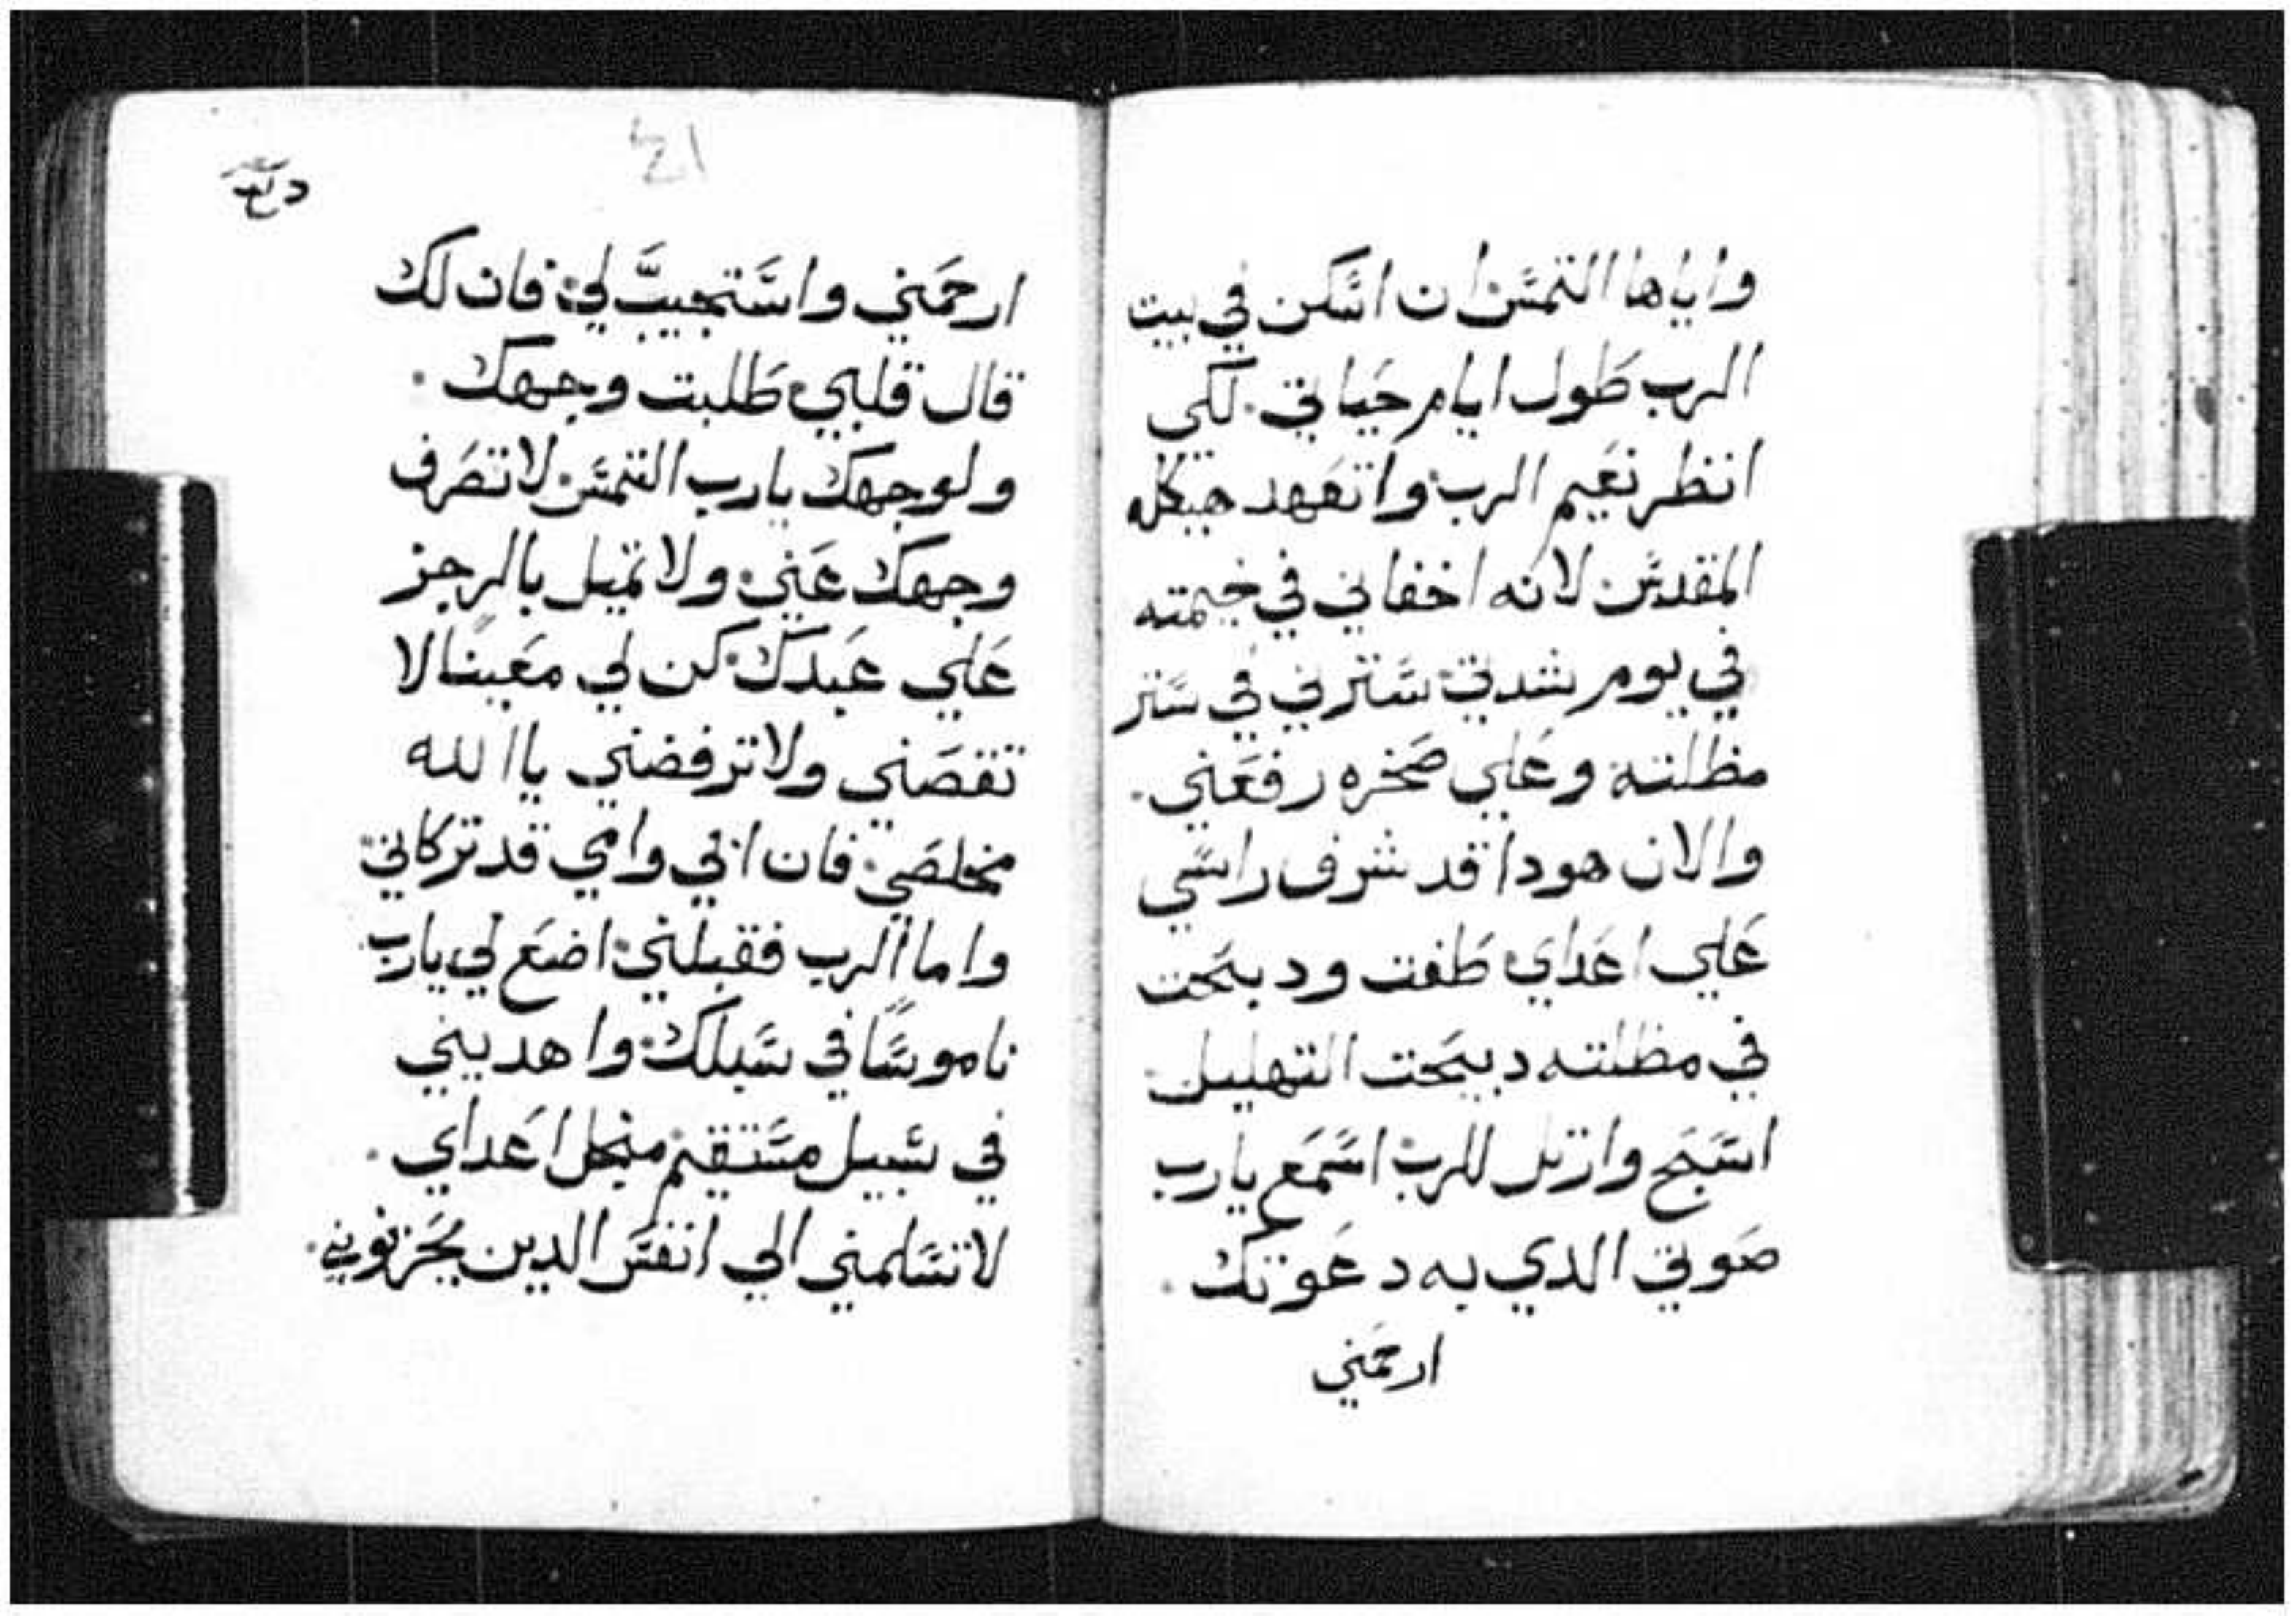 واياها التمس ان اسكن في بيت
الرب طول ايام حياتي. لكى
انظر نعيم الرب واتعهد هيكله
المقدس لانه اخفاني في خيمته
في يوم شدتي سترني في ستر
مظلته وعلي صخره رفعني.
والان هودا قد شرف راسي
علي اعداي طفت ودبحت
في مظلته دبيحت التهليل.
اسبح وارتل للرب اسمع يارب
صوتي الدي به دعوتك.
ارحمني
ارحمني واستجيب لي فان لك
قال قلبي طلبت وجهك.
ولوجهك يارب التمس لا تصرف
وجهك عني ولا تميل بالرجز
علي عبدك كن لي معينًا لا
تقصني ولا ترفضني يا الله
مخلصي فان ابي وامي قد تركاني
واما الرب فقبلني اضع لي يارب
ناموسًا في سبلك واهديني
في سبيل مستقيم منجل اعداي.
لا تسلمني الي انفس الدين يحزنوني.